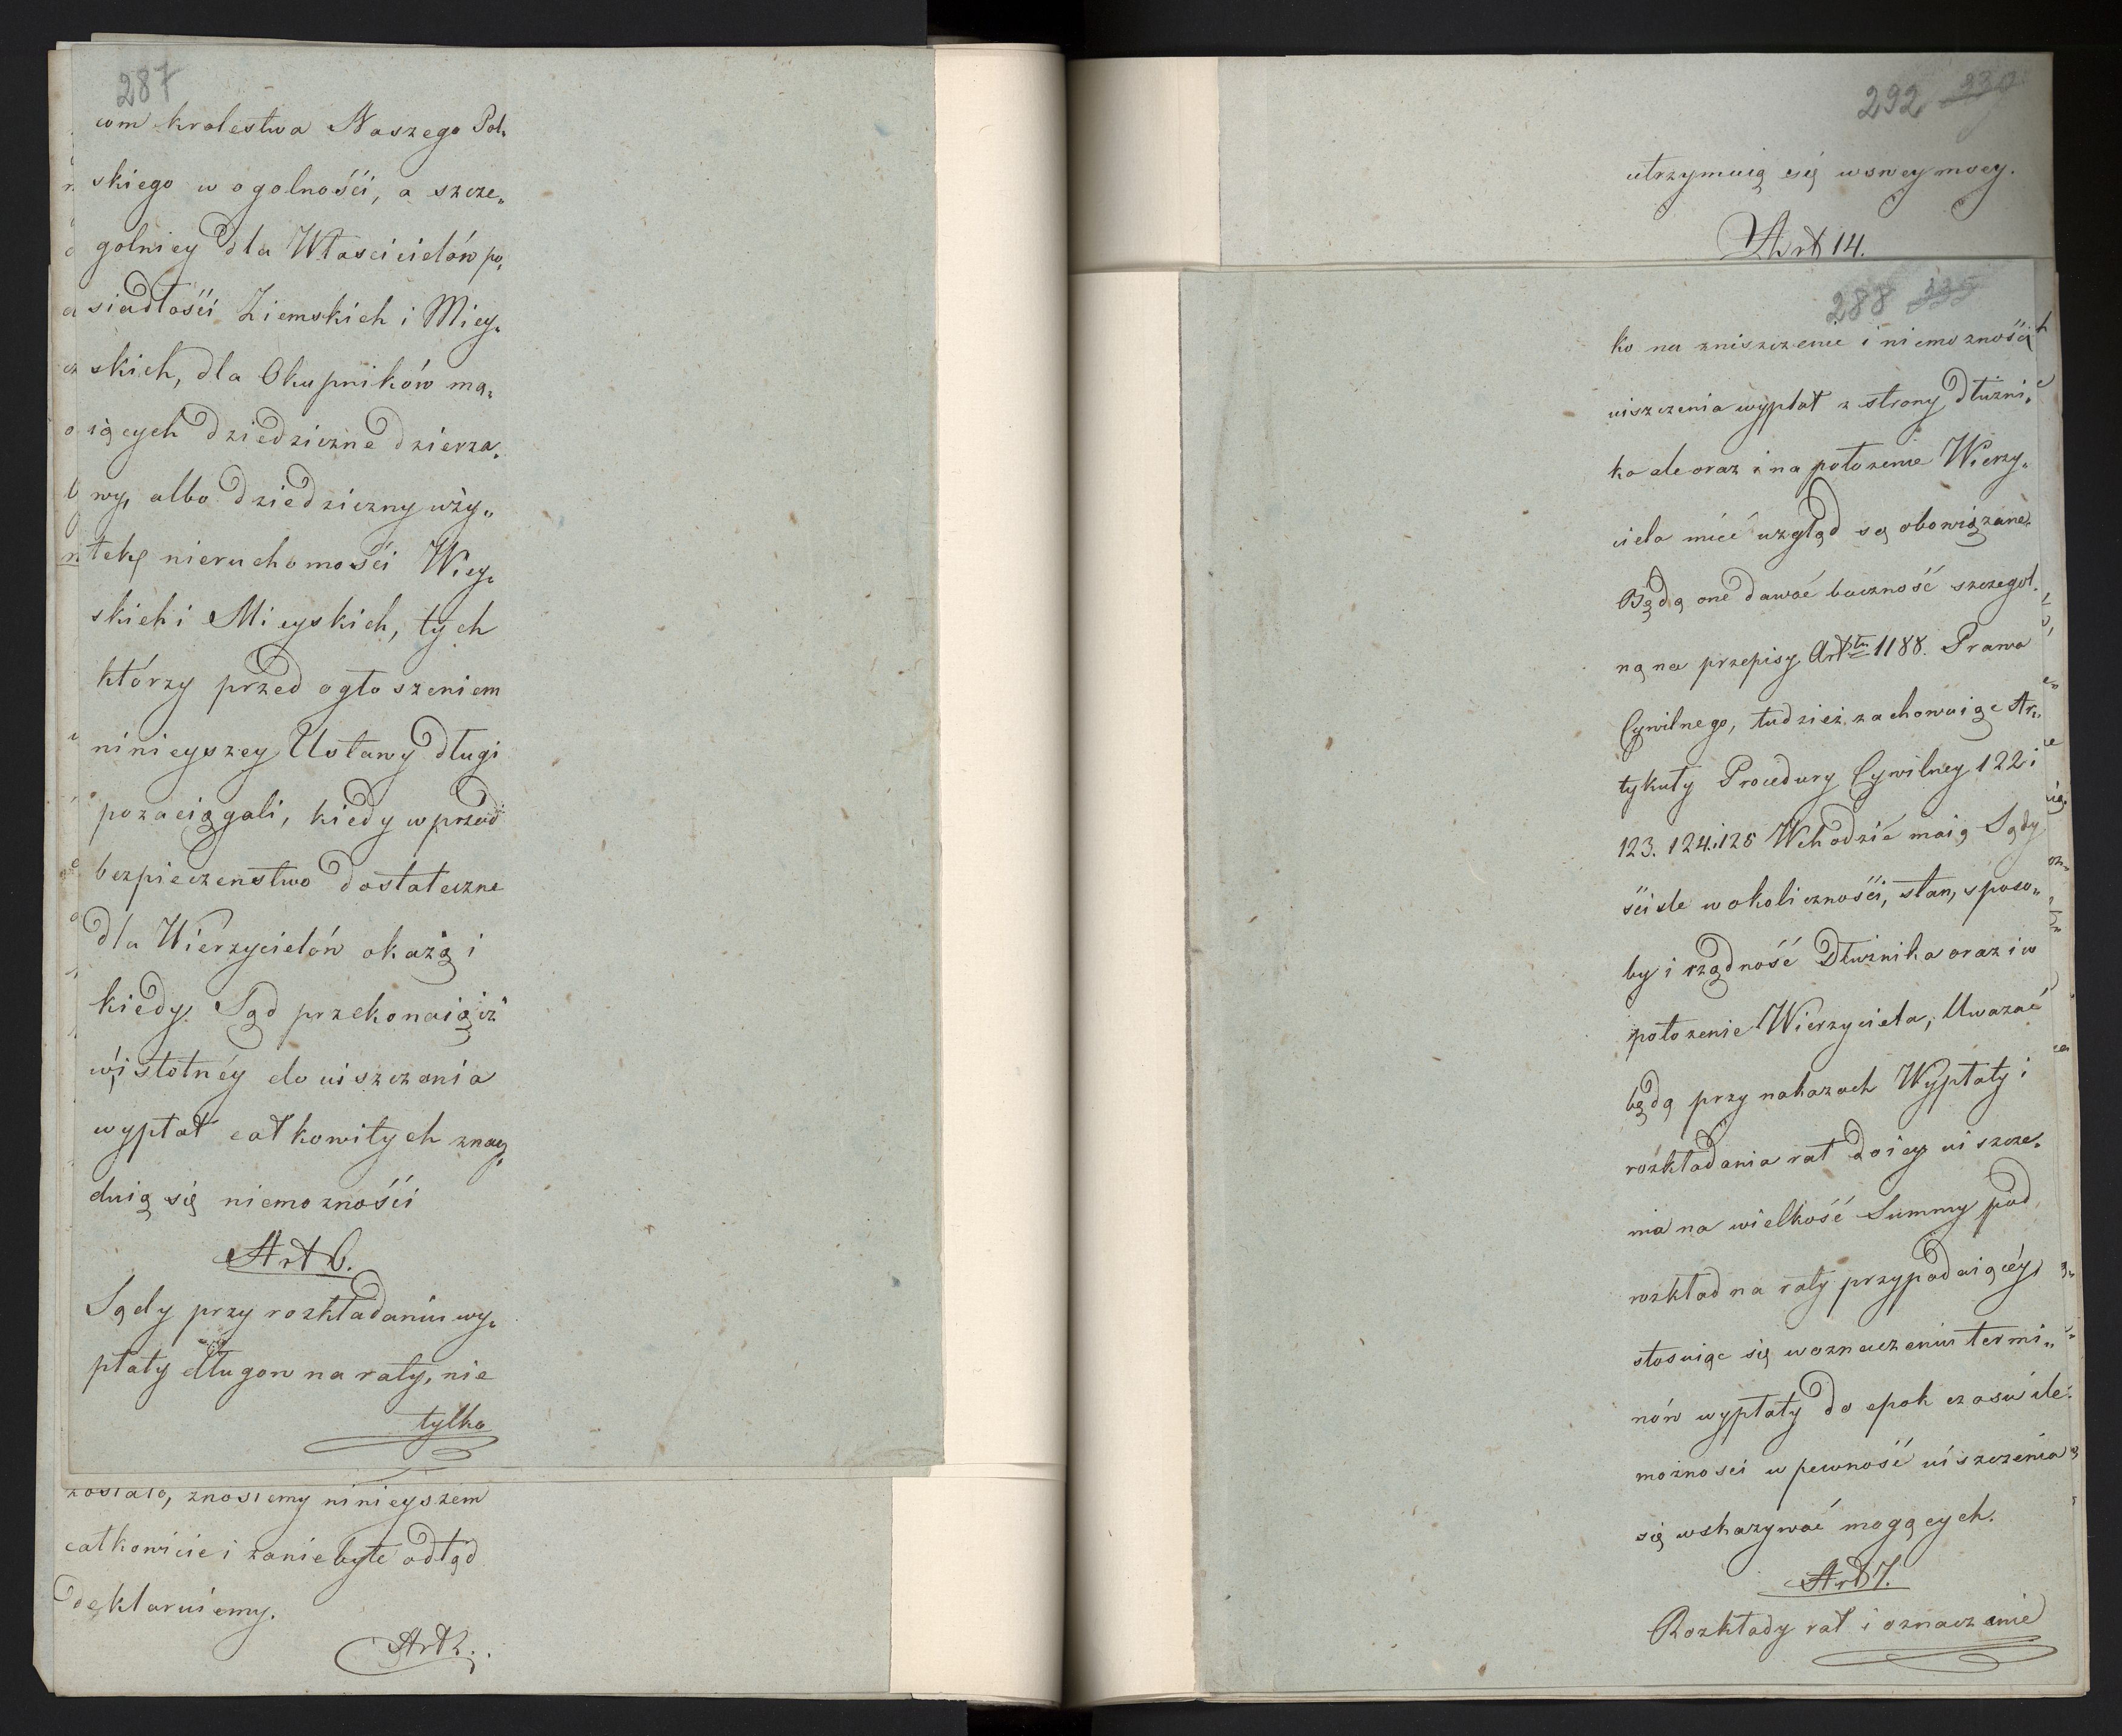 287
com krolestwa Naszego Pol„
skiego w ogolnośći, a szcze„
golniey dla Włascicielów po„
siadłośći Ziemskich i Miey„
skich, dla Okupników ma„
iących dziedziczne dzierza„
wy, albo dziedziczny uży„
tek nieruchomośći Wiey„
skich i Mieyskich, tych
którzy przed ogłoszeniem
ninieyszey Ustawy długi
pozaciągali, kiedy wprzód
bezpieczenstwo dostateczne
dla Wierzycielów okażą i
kiedy Sąd przekonaią iż
w istotnéy do uiszczenia
wypłat całkowitych znay„
duią się niemoznośći
Art 6.
Sądy przy rozkładaniu wy„
płaty długow na raty, nie
tylko
zostało, znosiemy ninieyszem
całkowicie i zaniebyłe odtąd
deklaruiemy.
Art 2.
292 330
utrzymuią się w swey mocy.
Art 14.
288
ko na zniszczenie i niemoznośći
uiszczenia wypłat z strony dłużni„
ka ale oraz i na położenie Wierzy„
ciela mieć wzgląd są obowiązane.
Będą one dawać baczność szczegol„
ną na przepisy Art^łu 1188. Prawa
Cywilnego, tudzież zachowuiąc Ar„
tykuły Procedury Cywilney 122 i
123. 124. i 125 Wchodzić maią Sądy
śćisle w okolicznośći, stan, sposo„
by i rządność Dłużnika oraz i w
położenie Wierzyciela, Uwazać
będą przy nakazach Wypłaty i
rozkładania rat do iey uiszcze„
nia na wielkość Summy pod
rozkład na raty przypadaiącéy,
stosuiąc się w oznaczeniu termi„
nów wypłaty do epok czasu ile
możnosci w pewność uiszczenia
się wskazywać mogących.
Art 7.
Rozkłady rat i oznaczenie